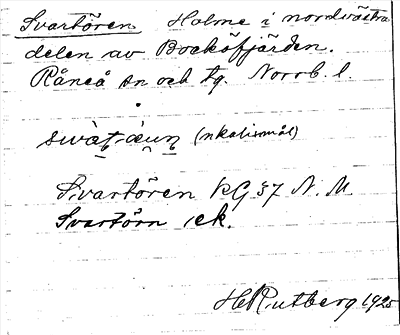 Svartören Holme i nordvästra
delen av Bocköfjärden.
Råneå sn och tg. Norrb. l.
svàt-àuṇ (nkalismål)
Svartören kG 37 N. M.
Svartörn ek.
H Rutberg 1925